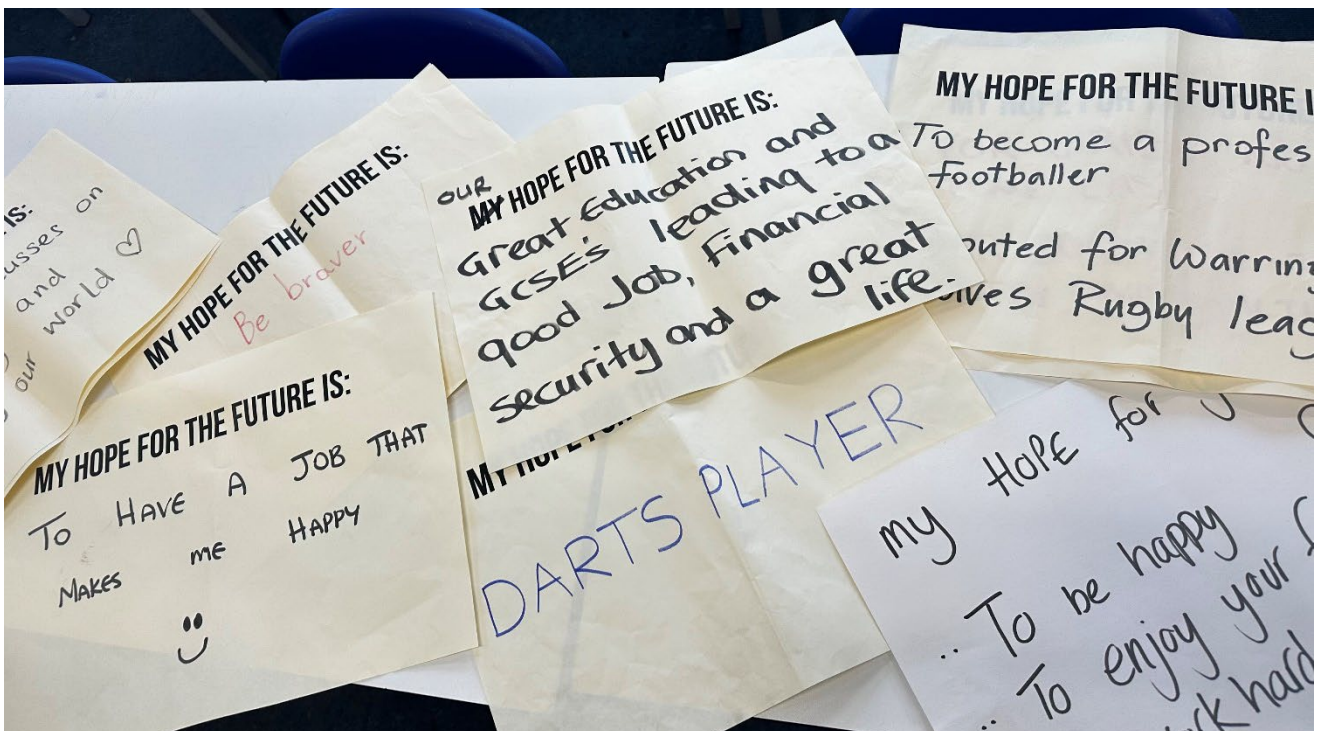 IS:
on
and
our world ♡
MY HOPE FOR THE FUTURE IS:
Be braver
OUR MY HOPE FOR THE FUTURE IS:
Great Education and
GCSE's leading to a
good Job, Financial
security and a great
life.
MY HOPE FOR THE FUTURE
To become a
footballer
for
Rugby
MY HOPE FOR THE FUTURE IS:
TO HAVE A JOB THAT
MAKES ME HAPPY
MY HOPE
DARTS PLAYER
my HOPE for
.. To be happy
.. To enjoy your
hard